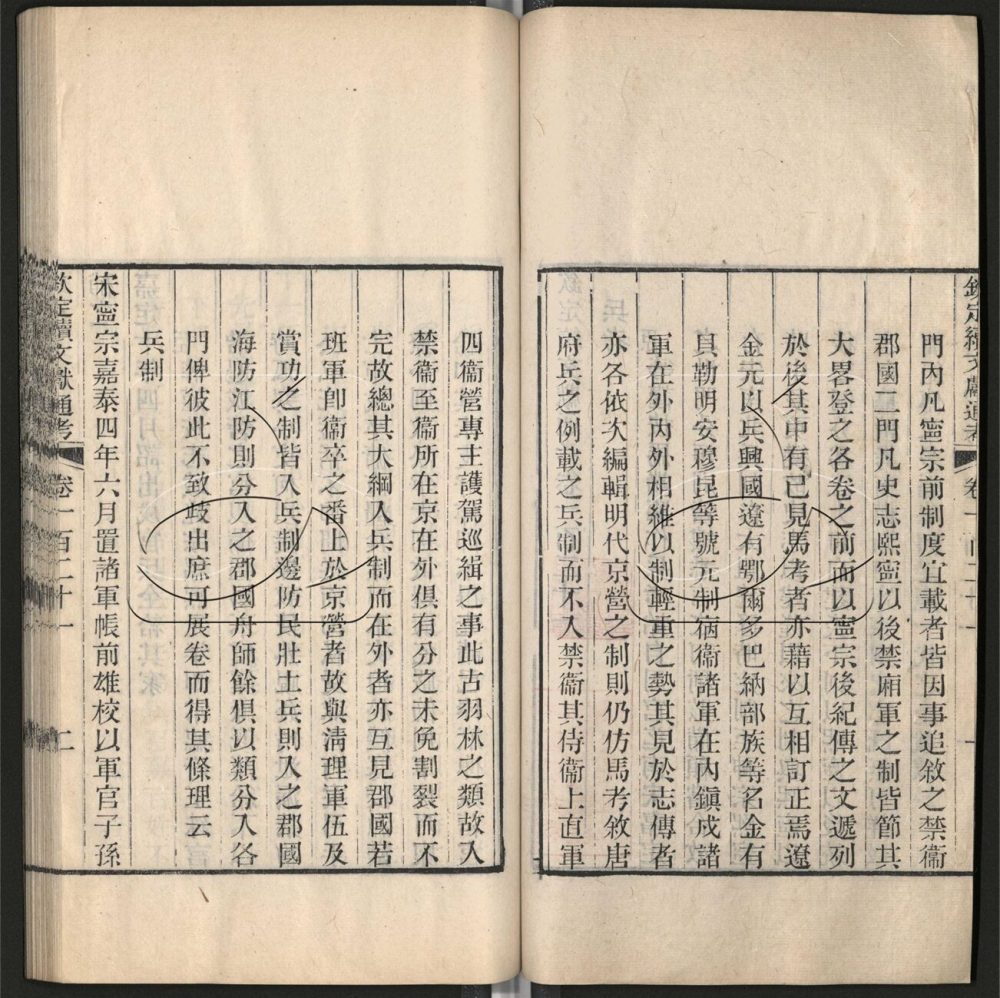 欽定續文獻通考 卷一百二十一 一
門內凡寧宗前制度宜載者皆因事追敘之禁衞
郡國二門凡史志熙寧以後禁廂軍之制皆節其
大畧登之各卷之前而以寧宗後紀傳之文遞列
於後其中有已見馬考者亦藉以互相訂正焉遼
金元以兵興國遼有鄂爾多巴納部族等名金有
具勒明安穆昆等號元制宿衞諸軍在內鎭戍諸
軍在外內外相維以制輕重之勢其見於志傳者
亦各依次編輯明代京營之制則仍仿馬考敘唐
府兵之例載之兵制而不入禁衞其侍衞上直軍
四衞營專主護駕巡緝之事此古羽林之類故入
禁衞至衞所在京在外俱有分之未免割裂而不
完故總其大綱入兵制而在外者亦互見郡國若
班軍卽衞卒之番上於京營者故與淸理軍伍及
賞功之制皆入兵制邊防民壯土兵則入之郡國
海防江防則分入之郡國舟師餘俱以類分入各
門俾彼此不致歧出庶可展卷而得其條理云
兵制
宋寧宗嘉泰四年六月置諸軍帳前雄校以軍官子孫
欽定續文獻通考 卷一百二十一 二